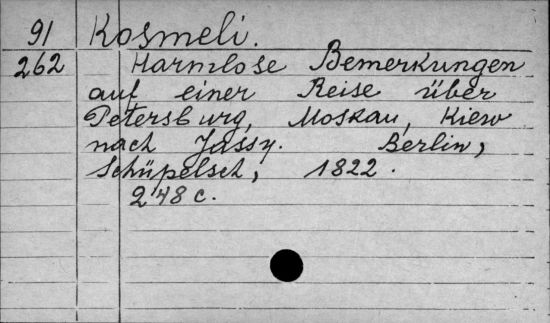 91 Kosmeli.
262 Harmlose Bemerkungen
auf einer Reise über
Petersburg, Moskau, Kiew
nach Jassy. Berlin,
Schüpelsch, 1822.
248 c.